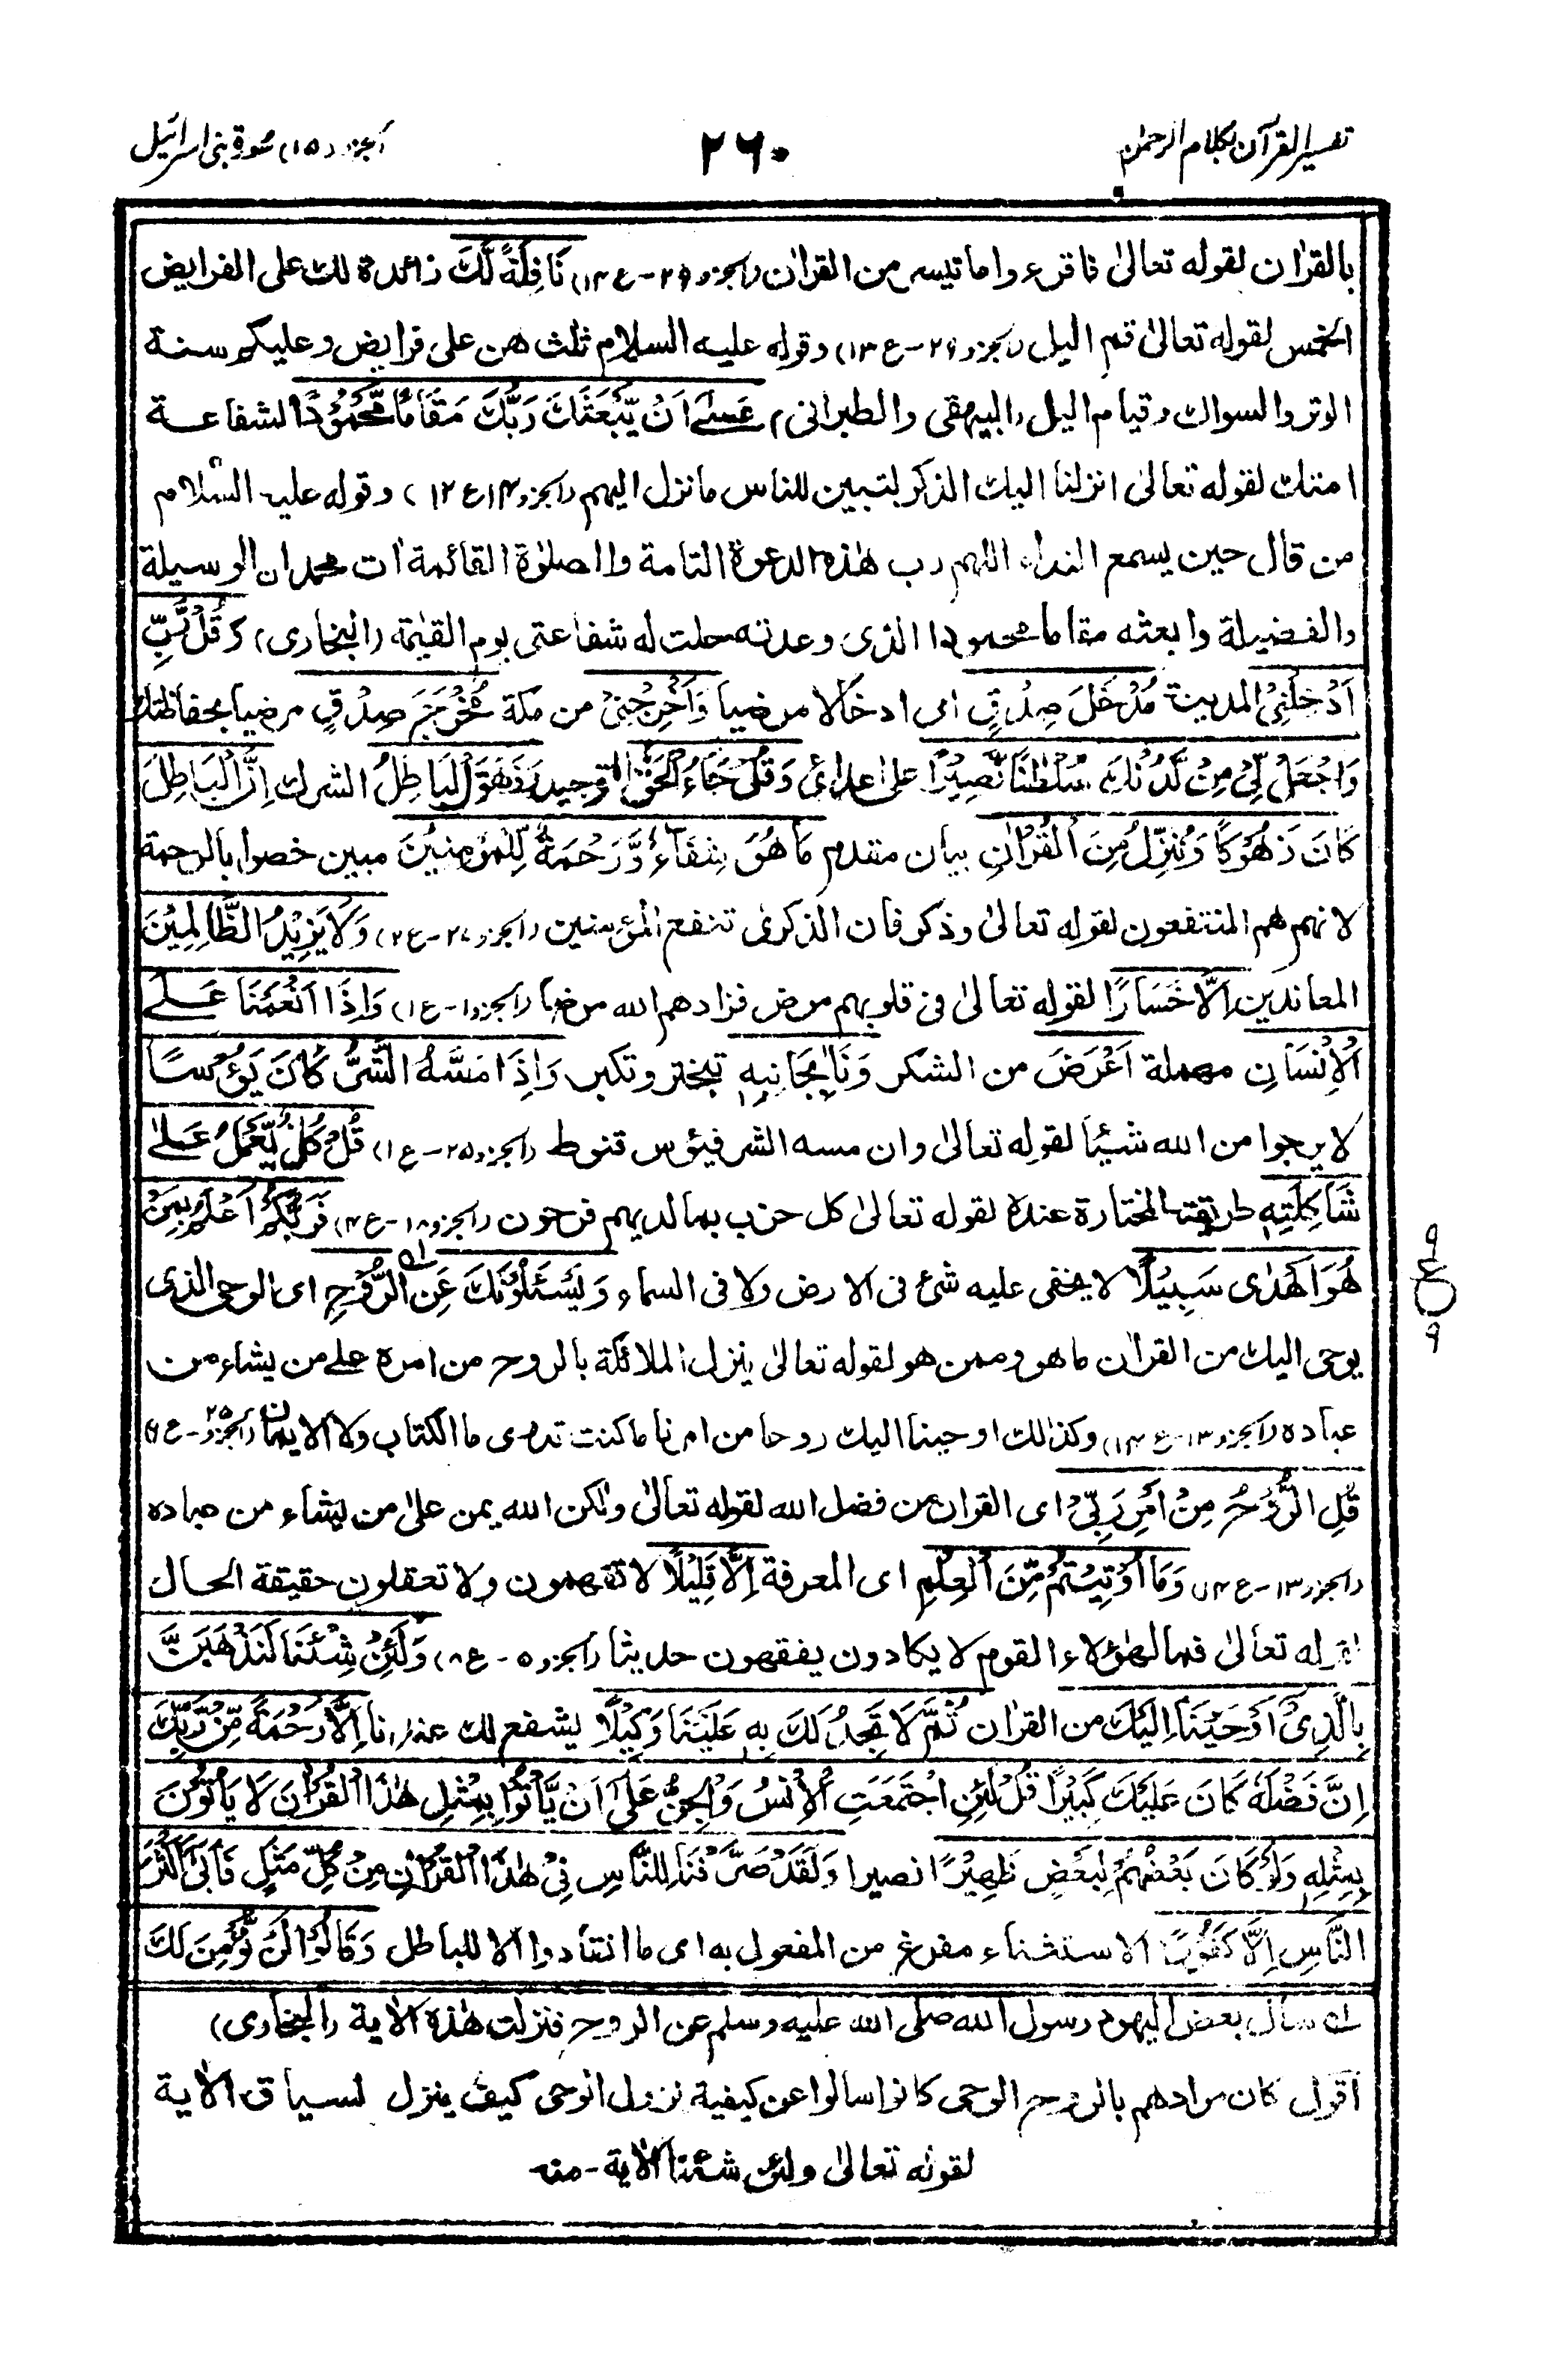 تفسیر القرآن بکلام الرحمٰن
٢٦٠
الجزء (١٥) سورة بنی اسرائیل
بالقراٰن لقوله تعالیٰ فاقرءواما تیسر من القراٰن (الجزو ٢٩-ع ١٣) نَافِلَةً لَّكَ زائدة لك علی الفرایض
الخمس لقوله تعالیٰ قم الیل (الجزو ٢٩-ع ١٣) وقوله علیه السلام ثلٰث هن علی فرایض وعلیکم سنة
الوتر والسواك وقیام الیل (البیهقی والطبرانی) عَسٰۤے اَنْ یَّبْعَثَكَ رَبُّكَ مَقَامًا مَّحْمُوْدًا الشفاعة
امتك لقوله تعالیٰ انزلنا الیك الذکر لتبین للناس ما نزل الیهم (الجزو ١٤ ع ١٢) وقوله علیه السّلام
من قال حین یسمع النداء اللهم رب هٰذه الدعوة التامة والصلوٰة القائمة اٰت محمدان الوسیلة
والفضیلة وابعثه مقاما محمودا الذی وعدته حلت له شفاعتی یوم القیٰمة (البخاری) وَقُلْ رَّبِّ
اَدْخِلْنِیْ المدینة مُدْخَلَ صِدْقٍ ای ادخالا مرضیا وَاَخْرِجْنِیْ من مکة مُخْرَجَ صِدْقٍ مرضیا بحفاظتك
وَاجْعَلْ لِّیْ مِنْ لَّدُنْكَ سُلْطٰنًا نَّصِیْرًا علیٰ اعدائی وَقُلْ جَآءَ الْحَقُّ التوحید وَزَهَقَ الْبَاطِلُ الشرك اِنَّ الْبَاطِلَ
كَانَ زَهُوْقًا وَنُنَزِّلُ مِنَ الْقُرْاٰنِ بیان مقدم مَا هُوَ شِفَآءٌ وَّرَحْمَةٌ لِّلْمُؤْمِنِیْنَ مبین خصوا بالرحمة
لانهم هم المنتفعون لقوله تعالیٰ وذکر فان الذکریٰ تنفع المؤمنین (الجزو ٢٧-ع ٢) وَلَا یَزِیْدُ الظّٰلِمِیْنَ
المعاندین اِلَّا خَسَارًا لقوله تعالیٰ فی قلوبهم مرض فزادهم الله مرضا (الجزو ١-ع ١) وَاِذَا اَنْعَمْنَا عَلَے
الْاِنْسَانِ مهملة اَعْرَضَ من الشکر وَنَاٰ بِجَانِبِهٖ تبختر وتکبر وَاِذَا مَسَّهُ الشَّرُّ كَانَ یَؤُسًا
لا یرجوا من الله شیئا لقوله تعالیٰ وان مسه الشر فیئوس قنوط (الجزو ٢٥-ع ١) قُلْ كُلٌّ یَّعْمَلُ عَلیٰ
شَاكِلَتِهٖ طریقته المختارة عنده لقوله تعالیٰ کل حزب بما لدیهم فرحون (الجزو ١٨-ع ٤) فَرَبُّكُمْ اَعْلَمُ بِمَنْ
هُوَ اَهْدٰی سَبِیْلًا لا یخفی علیه شئ فی الارض ولا فی السماء وَیَسْئَلُوْنَكَ عَنِ الرُّوْحِ ای الوحی الذی
یوحی الیك من القراٰن ما هو وممن هو لقوله تعالیٰ ینزل الملائكة بالروح من امره علے من یشاء من
عباده (الجزو ١٣-ع ١٣) وکذٰلك اوحینا الیك روحا من امرنا ما کنت تدری ما الکتاب ولا الایمان (الجزو ٢٥-ع ٦)
قُلِ الرُّوْحُ مِنْ اَمْرِ رَبِّیْ ای القراٰن من فضل الله لقوله تعالیٰ ولٰکن الله یمن علیٰ من یشاء من عباده
(الجزو ١٣-ع ١٤) وَمَا اُوْتِیْتُمْ مِّنَ الْعِلْمِ ای المعرفة اِلَّا قَلِیْلًا لا تفهمون ولا تعقلون حقیقة الحال
لقوله تعالیٰ فمال هٰؤلاء القوم لا یکادون یفقهون حدیثا (الجزو ٥-ع ٨) وَلَئِنْ شِئْنَا لَنَذْهَبَنَّ
بِالَّذِیْ اَوْحَیْنَا اِلَیْكَ من القراٰن ثُمَّ لَا تَجِدُ لَكَ بِهٖ عَلَیْنَا وَكِیْلًا یشفع لك عندنا اِلَّا رَحْمَةً مِّنْ رَّبِّكَ
اِنَّ فَضْلَهٗ كَانَ عَلَیْكَ كَبِیْرًا قُلْ لَّئِنِ اجْتَمَعَتِ الْاِنْسُ وَالْجِنُّ عَلٰۤی اَنْ یَّاْتُوْا بِمِثْلِ هٰذَا الْقُرْاٰنَ لَا یَاْتُوْنَ
بِمِثْلِهٖ وَلَوْ كَانَ بَعْضُهُمْ لِبَعْضٍ ظَهِیْرًا نصیرا وَلَقَدْ صَرَّفْنَا لِلنَّاسِ فِیْ هٰذَا الْقُرْاٰنِ مِنْ كُلِّ مَثَلٍ فَاَبٰۤی اَكْثَرُ
النَّاسِ اِلَّا كُفُوْرًا الاستثناء مفرغ من المفعول به ای ما انقادوا الا للباطل وَقَالُوْا لَنْ نُّؤْمِنَ لَكَ
ع
٩
٩
له سأل بعض الیهود رسول الله صلی الله علیه وسلم عن الروح فنزلت هٰذه الاٰیة (البخاری)
اقول کان مرادهم بالروح الوحی کانوا سالوا عن کیفیة نزول الوحی کیف ینزل لسیاق الاٰیة
لقوله تعالیٰ ولئن شئنا الاٰیة-منه